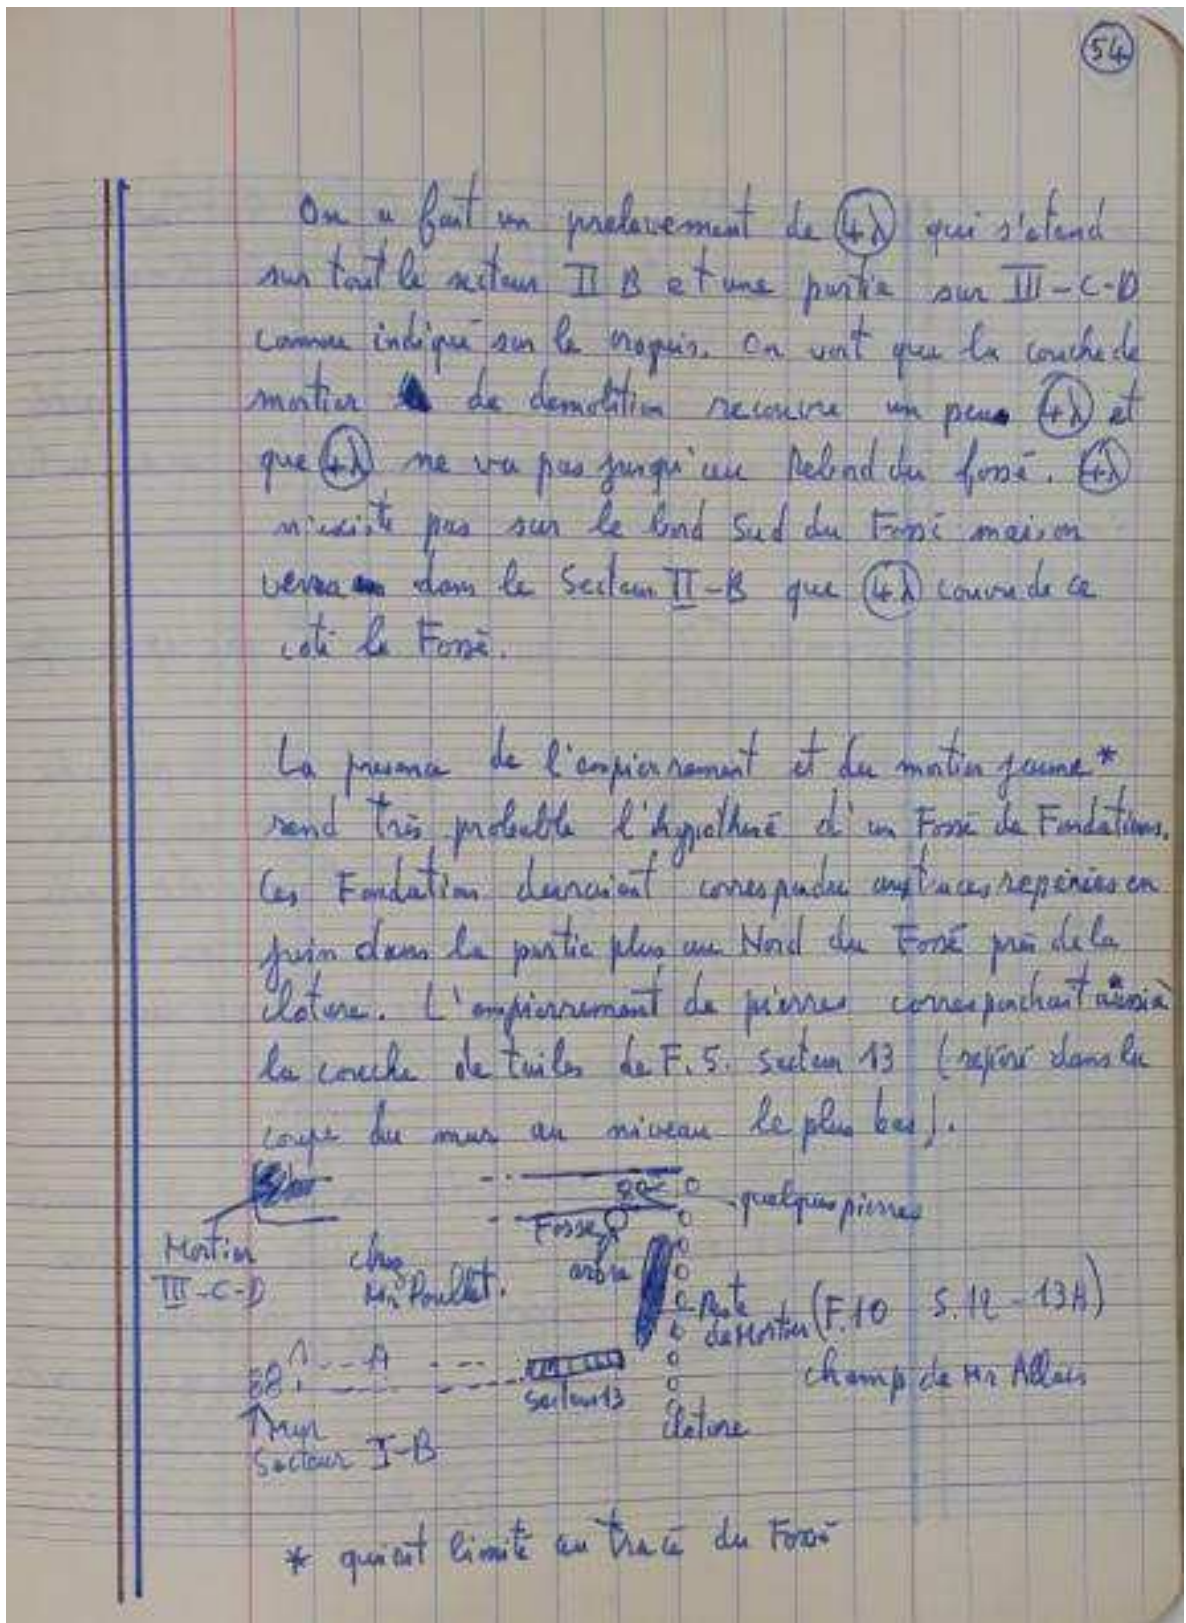 54
On a fait un prelevement de 4λ qui s'etend
sur tout le secteur II B et une partie sur III-C-D
comme indiqué sur le croquis. On voit que la couche de
mortier de demolition recouvre un peu 4λ et
que 4λ ne va pas jusqu'au Rebord du fossé. 4λ
n'existe pas sur le bord Sud du Fossé mais on
verra dans le Secteur II-B que 4λ couvre de ce
coté le Fossé.
La presence de l'empierrement et du mortier jaune *
rend très probable l'hypothese d'un Fossé de Fondations.
Ces Fondation devraient correspondre aux traces reperées en
juin dans la partie plus au Nord du Fossé près de la
cloture. L'empierrement de pierres correspondrait aussi à
la couche de tuiles de F.5. secteur 13 (repéré dans la
coupe du mur au niveau le plus bas).
quelques pierres
Fossé
Mortier
III-C-D
chez
Mr Poullet.
arbre
Reste
de Mortier (F.10 S.12-13A)
A
secteur 13
champ de Mr Allais
Mur
Secteur I-B
cloture
* qui est limité au tracé du Fossé